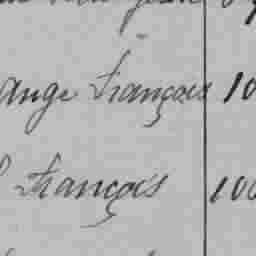 ange François 10
François 100